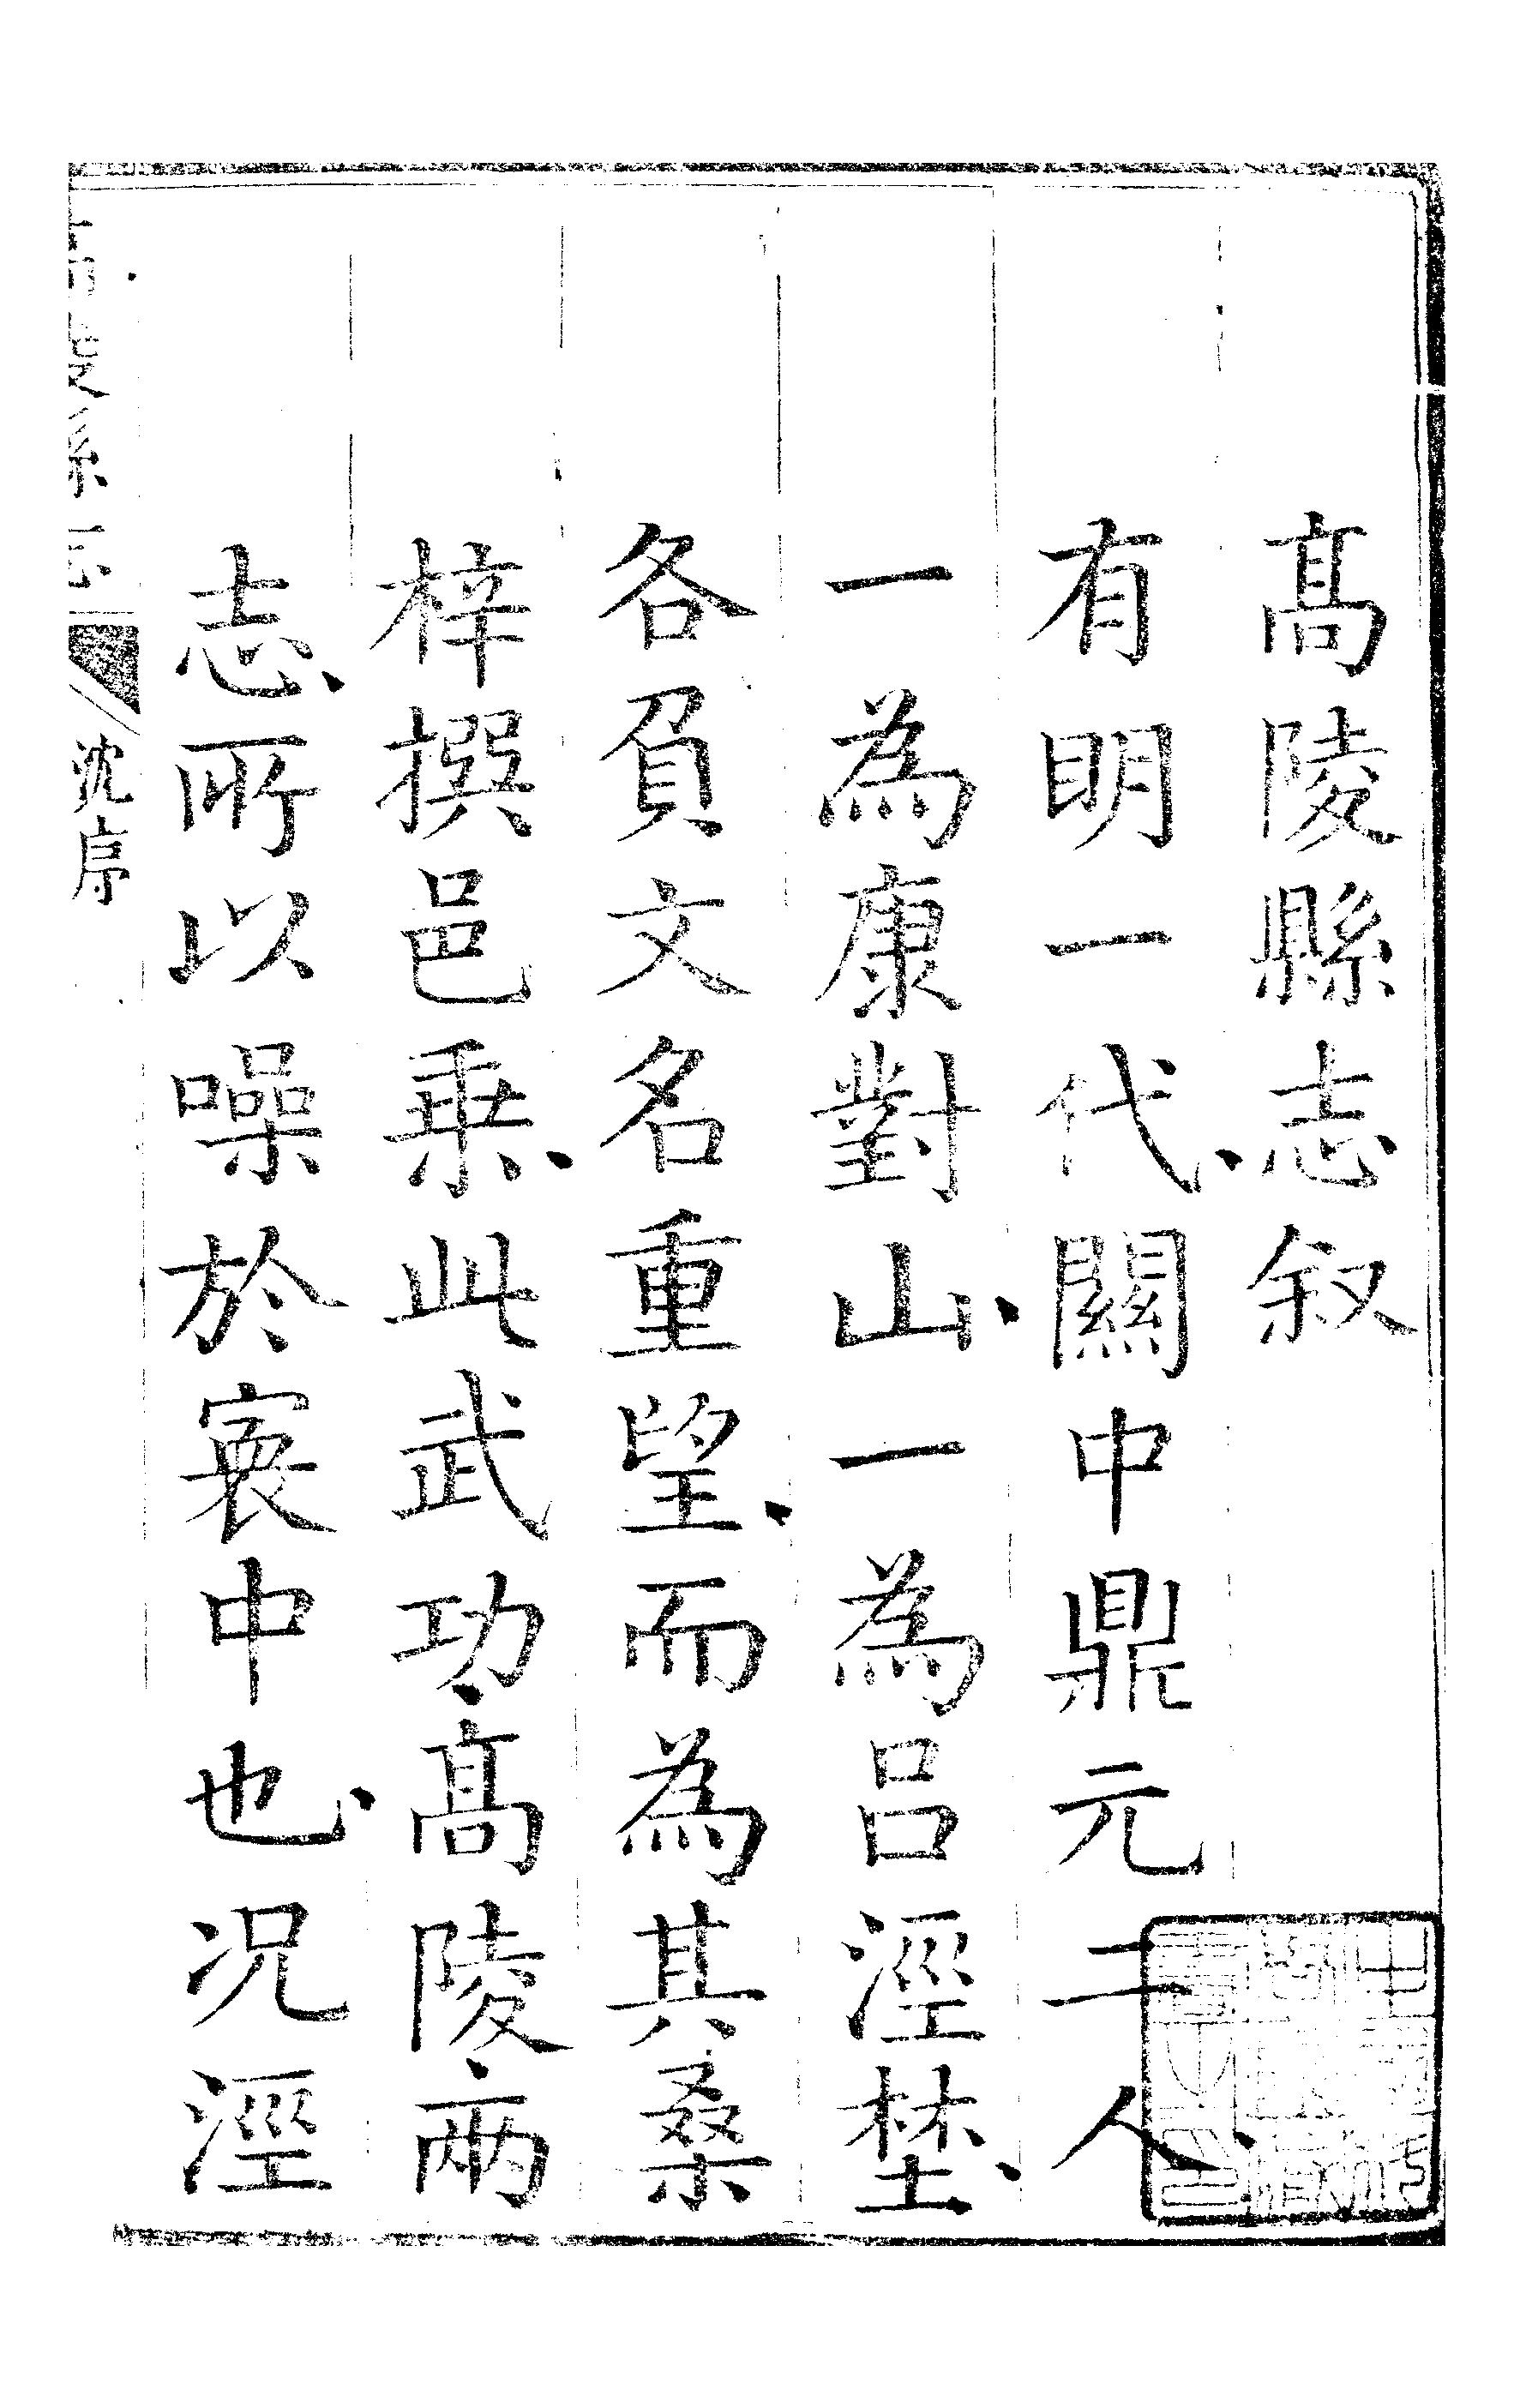 高陵縣志叙
有明一代、關中鼎元二人、
一為康對山、一為呂涇埜、
各負文名重望、而為其桑
梓撰邑乗、此武功、高陵、兩
志、所以噪於寰中也、况涇
高陵縣志
沈序